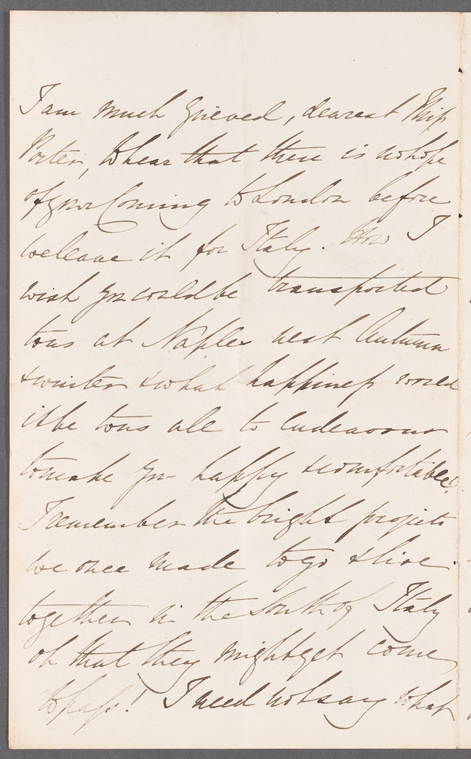 I am much grieved, dearest Miss
Porter, to hear that there is no hope
of your coming to London before
we leave it for Italy. How I
wish you could be transported
to us at Naples next Autumn
& winter & what happiness would
it be to us all to endeavour
to make you happy & comfortable!
I remember the bright projects
we once made to go & live
together in the South of Italy
oh that they might yet come
to pass! I need not say what